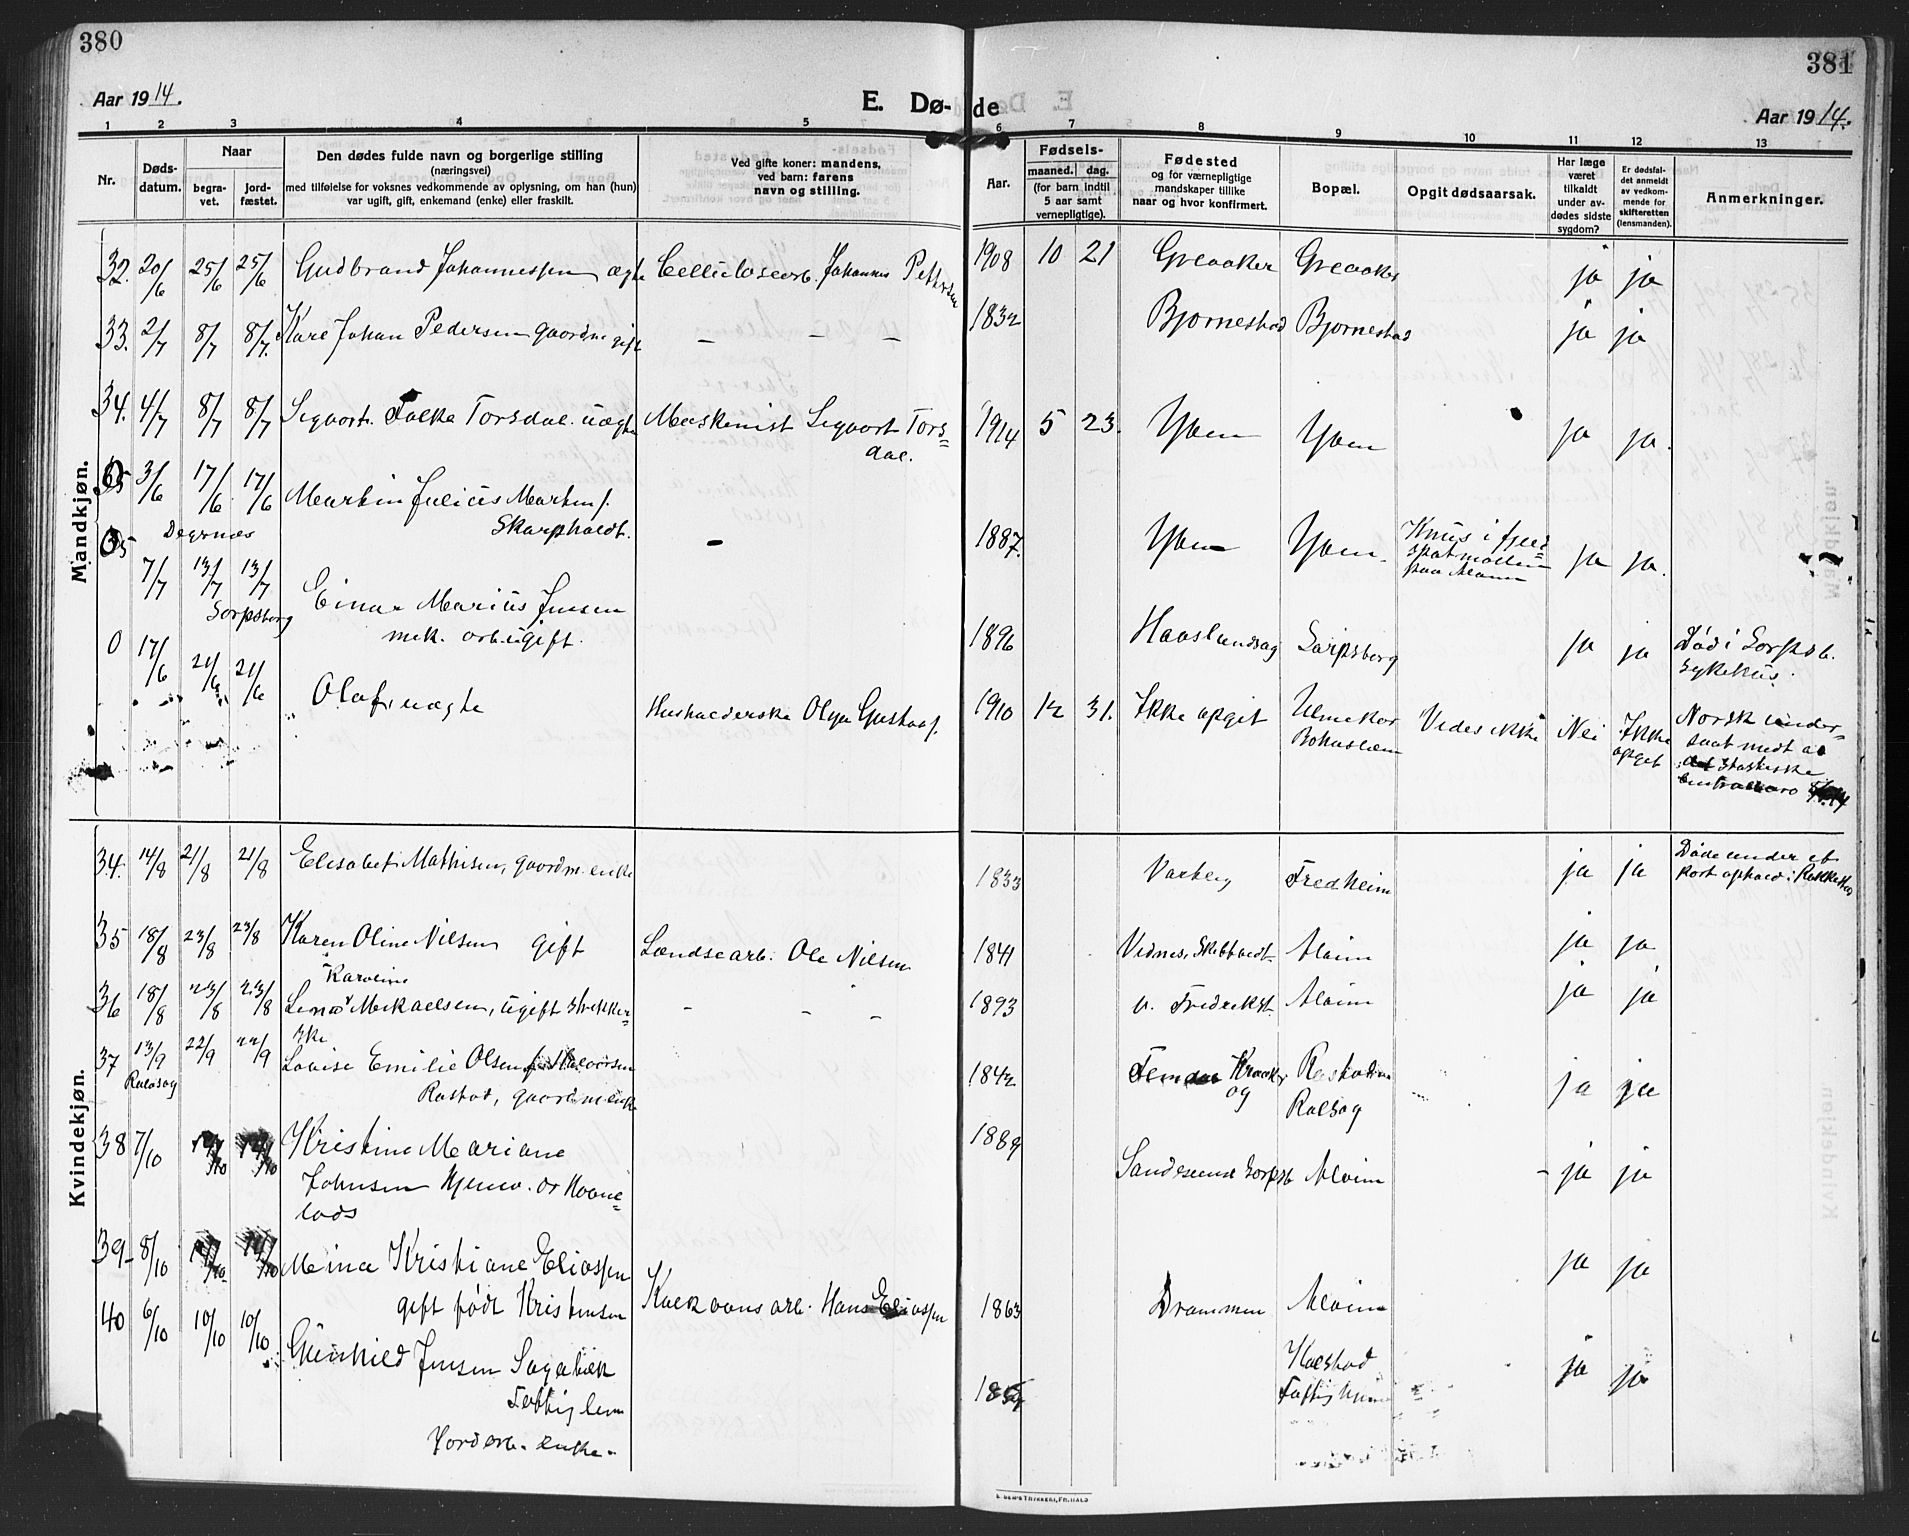 380
381
Aar 1914.
E. Døde
Aar 1914.
1 2 3 4 5 6 7 8 9 10 11 12 13
Nr.
Døds-
datum.
Naar
begra-
vet.
jord-
fæstet.
Den dødes fulde navn og borgerlige stilling
(næringsvei)
med tilføielse for voksnes vedkommende av oplysning, om han (hun)
var ugift, gift, enkemand (enke) eller fraskilt.
Ved gifte koner: mandens,
ved barn: farens
navn og stilling.
Aar.
Fødsels-
maaned. dag.
(for barn indtil
5 aar samt
vernepligtige).
Fødested
og for værnepligtige
mandskaper tillike
naar og hvor konfirmert.
Bopæl.
Opgit dødsaarsak.
Har læge
været
tilkaldt
under av-
dødes sidste
sygdom?
Er dødsfal-
det anmeldt
av vedkom-
mende for
skifteretten
(lensmanden).
Anmerkninger.
Mandkjøn.
32. 20/6 25/6 25/6 Gudbrand Johannessen ægte Cellulosearb. Johannes Pettersen 1908 10 21 Greaaker Greaaker ja ja
33. 2/7 8/7 8/7. Karl Johan Pedersen gaardm gift — — — 1832 Bjørnestad Bjørnestad ja ja
34. 4/7 8/7 8/7 Sigvart Falke Torsdal. uægte Maskinist Sigvart Tors=
dal. 1914 5 23. Yven Yven ja ja.
35 3/6 17/6 17/6 Martin Julius Martins.
Skarpholdt. – 1887. Yven Yven. Knus i feld=
spatmøllen
paa Alvim ja ja.
Degernæs
7/7 13/7 13/7 Einar Marius Jensen
Sarpsborg
mek. arb. ugift. 1896 Haslundsag Sarpsborg ja ja Død i Sarpsb.
sykehus.
0 17/6 21/6 21/6 Olaf, uægte Husholderske Olga Gustavs. 1910 12 31. Ikke opgit
Bohuslen Vides ikke Nei Ikke
opgit Norsk under-
saat medt a
det statistiske
Kvindekjøn.
34. 14/8 21/8 21/8 Elisabet Mathisen, gaardm. enke 1833 Varberg Fredheim ja ja Døde under et
kort ophold i Rakkestad
35 18/8 23/8 23/8 Karen Oline Nilsen gift Landsearb. Ole Nilsen 1841 Vidnes, Skibtvedt Alvim ja ja
Karoline
36 18/8 23/8 23/8 Lena Mikaelsen, ugift strikker-
ske - - - 1893 v. Fredrikst. Alvim ja ja
37 13/9 22/9 22/9 Lovise Emilie Olsen f. Halvorsen
Rolvsøg Rostad, gaardm. enke 1842 Kraaker
og Rolvsøg ja ja
38 7/10 12/10 12/10 Kristine Mariane
Johnsen Hjemv. or Hovne=
lods 1889 Sandesund Sarpsb Alvim - ja ja
39- 8/10 14/10 14/10 Meina Kristiane Eliassen
gift født Kristensen Kalkovnsarb. Hans Eliassen 1863 Drammen Alvim ja ja
40 6/10 10/10 10/10 Gunhild Jensen Sagabæk
Fattiglem
enke. Kalstad ja ja
E. SEM'S TRYKKERI, FR.HALD